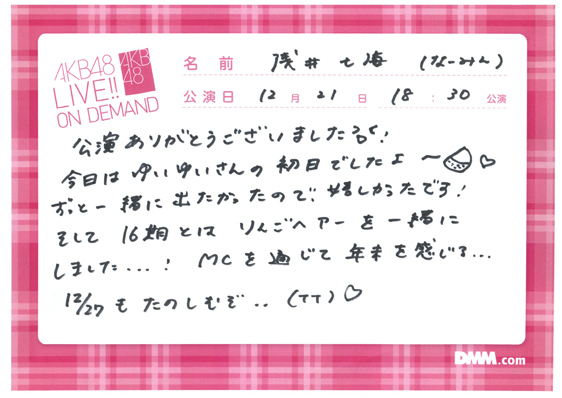 AKB48
LIVE!!
ON DEMAND
AKB
48
名 前 浅井七海 (なーみん)
公演日 12 月 21 日 18 : 30 公演
公演ありがとうございました!
今日はゆいゆいさんの初日でしたよ〜♡
ずっと一緒に出たかったので、嬉しかったです!
そして 16期とは りんごヘアーを一緒に
しました...! MCを通じて 年末を感じる...
12/27も たのしむぞ.. (TT)♡
DMM.com